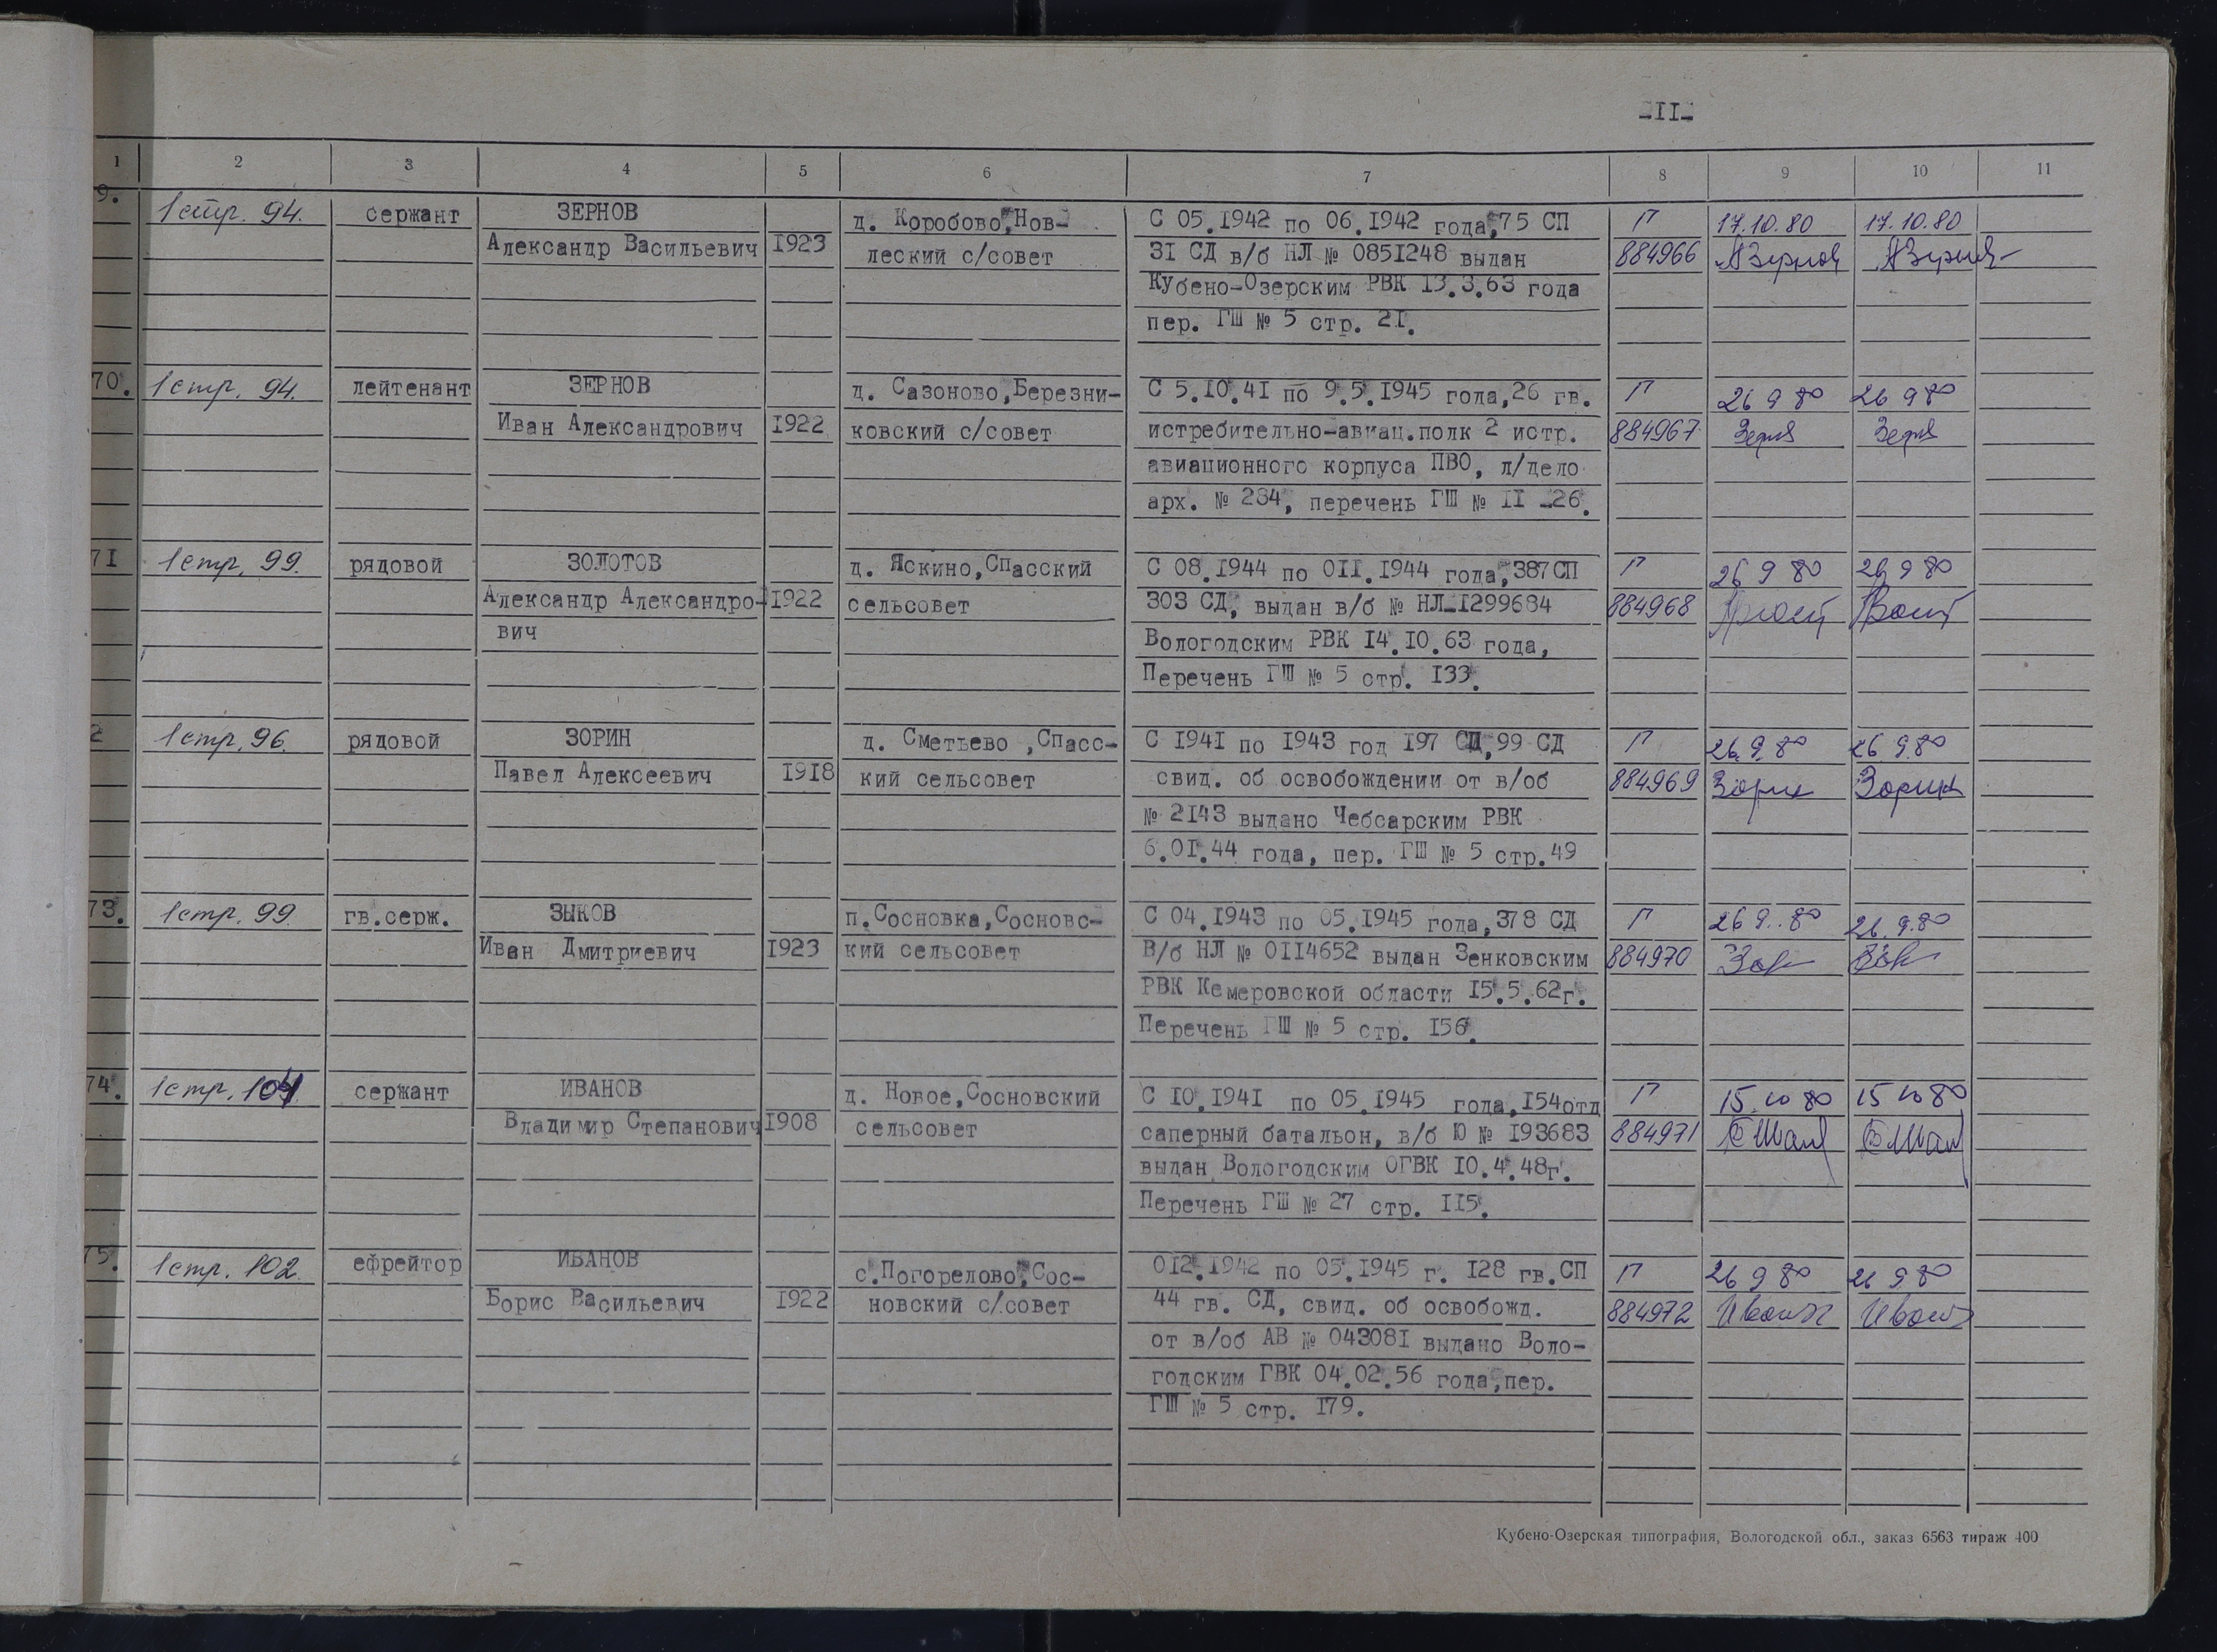 -II-
1 2 3 4 5 6 7 8 9 10 11
9. 1 стр. 94. сержант ЗЕРНОВ д. Коробово,Нов- С 05.1942 по 06.1942 года,75 СП П 17.10.80 17.10.80
Александр Васильевич 1923 леский с/совет 31 СД в/б НЛ № 0851248 выдан 884966 АЗернов АЗернов
Кубено-Озерским РВК 13.3.63 года
пер. ГШ № 5 стр. 21.
70. 1 стр. 94. лейтенант ЗЕРНОВ д. Сазоново,Березни- С 5.10.41 по 9.5.1945 года,26 гв. П 26 9 80 26 9 80
Иван Александрович 1922 ковский с/совет истребительно-авиац.полк 2 истр. 884967
авиационного корпуса ПВО, л/дело
арх. № 284, перечень ГШ № II -26.
71 1 стр. 99. рядовой ЗОЛОТОВ д. Яскино,Спасский С 08.1944 по 011.1944 года,387 СП П 26 9 80 26 9 80
Александр Александро- 1922 сельсовет 303 СД, выдан в/б № НЛ-1299684 884968
вич Вологодским РВК 14.10.63 года,
Перечень ГШ № 5 стр. 133.
2 1 стр. 96. рядовой ЗОРИН д. Сметьево ,Спасс- С 1941 по 1943 год 197 СД,99 СД П 26.9.80 26 9.80
Павел Алексеевич 1918 кий сельсовет свид. об освобождении от в/об 884969 Зорин Зорин
№ 2143 выдано Чебсарским РВК
6.01.44 года, пер. ГШ № 5 стр.49
73. 1 стр. 99. гв.серж. ЗЫКОВ п.Сосновка,Сосновс- С 04.1943 по 05.1945 года,378 СД П 26 9..80 26.9.80
Иван Дмитриевич 1923 кий сельсовет В/б НЛ № 0114652 выдан Зенковским 884970
РВК Кемеровской области 15.5.62г.
Перечень ГШ № 5 стр. 156.
74. 1 стр. 104 сержант ИВАНОВ д. Новое,Сосновский С 10.1941 по 05.1945 года,154отд П 15.10 80 15 10 80
Владимир Степанович 1908 сельсовет саперный батальон, в/б Ю № 193683 884971
выдан Вологодским ОГВК 10.4.48г.
Перечень ГШ № 27 стр. 115.
75. 1 стр. 102. ефрейтор ИВАНОВ с.Погорелово,Сос- 012.1942 по 05.1945 г. 128 гв.СП П 26 9 80 26 9 80
Борис Васильевич 1922 новский с/совет 44 гв. СД, свид. об освобожд. 884972
от в/об АВ № 043081 выдано Воло-
годским ГВК 04.02.56 года,пер.
ГШ № 5 стр. 179.
Кубено-Озерская типография, Вологодской обл., заказ 6563 тираж 400